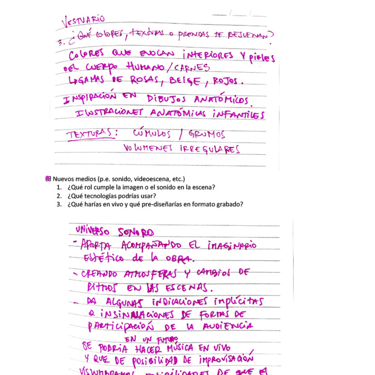 VESTUARIO
3. ¿Qué COLORES, TEXTURAS o PRENDAS TE RESUENAN?
COLORES QUE EVOCAN iNTERiORES Y PiELES
DEL CUERPO HUMANO / CARNES
GAMAS DE ROSAS, BEIGE, ROJOS.
INSPIRACIÓN EN DIBUJOS ANATÓMICOS.
ILUSTRACIONES ANATÓMICAS INFANTILES
TEXTURAS: CÚMULOS / GRUMOS
VOLUMENES IRREGULARES
Nuevos medios (p.e. sonido, videoescena, etc.)
1. ¿Qué rol cumple la imagen o el sonido en la escena?
2. ¿Qué tecnologías podrías usar?
3. ¿Qué harías en vivo y qué pre-diseñarías en formato grabado?
UNIVERSO SONORO
- APORTA ACOMPAÑANDO EL IMAGINARIO
ESTÉTICO DE LA OBRA.
- CREANDO ATMOSFERAS Y CAMBIOS DE
RITMOS EN LAS ESCENAS.
- DA ALGUNAS INDICACIONES IMPLÍCITAS
O INSINUACIONES DE FORMAS DE
PARTICIPACIÓN DE LA AUDIENCIA
EN UN FUTURO
SE PODRÍA HACER MÚSICA EN VIVO
Y QUE DE POSIBILIDAD DE IMPROVISACIÓN
DE QUE EL